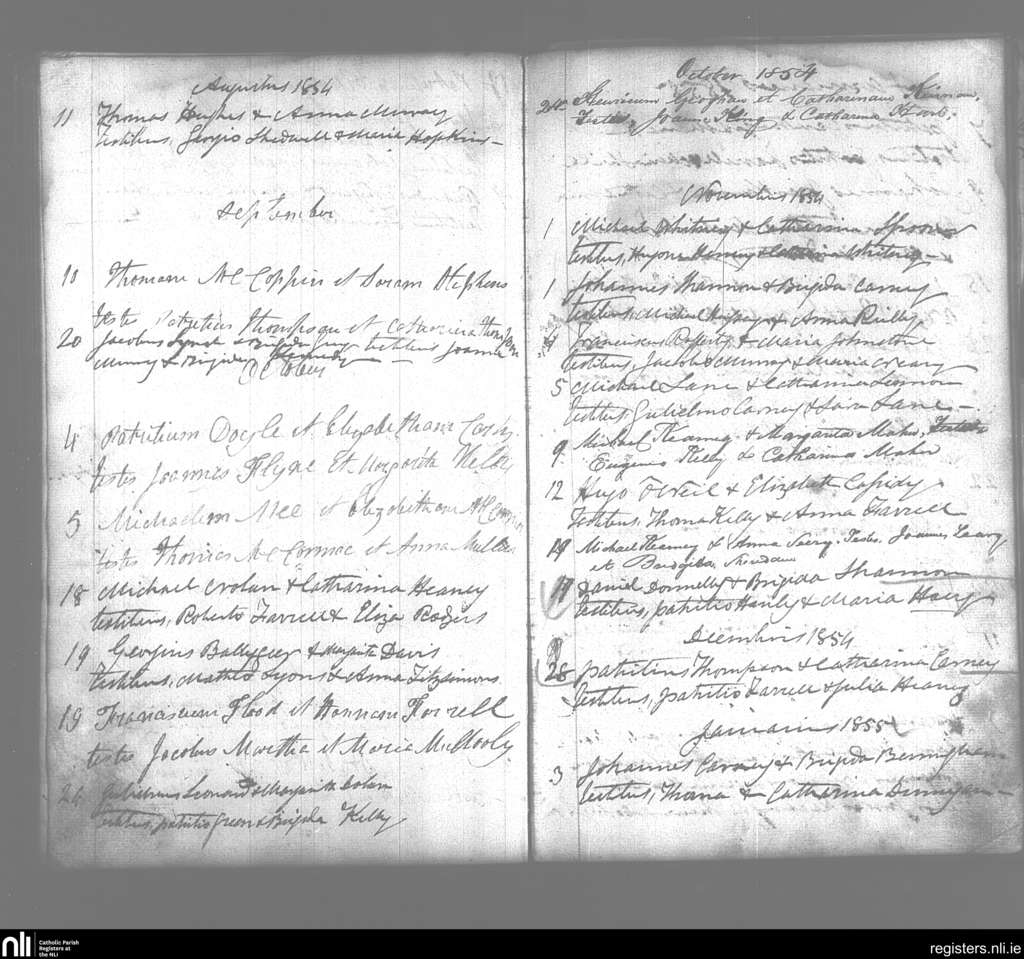 Augustus 1854
11 Thomas Hughes & Anna Murray
testibus, Georgio Shedwell & Maria Hopkins –
September
10 Thomam Mc Coppin et Saram Stephens
testes Patritius Thompson et Catharina Thompson
20 Jacobus & Brigida testibus Joanne
Murray & Brigida Kennedy –
Octobris
4 Patritium Doyle et Elizabetham Casey
testes Joannes Flyne et Margarita Kelly
5 Michaelem Mee et Elizabetham McCormac
testes Thomas McCormac et Anna Mullen
18 Michael Crolan & Catharina Heaney
testibus, Roberto Farrell & Eliza Rodgers
19 Georgius & Margarita Davis
testibus, Matheo Lyons & Anna Fitzsimons
19 Franciscum Flood et Honnam Forrell
testes Jacobus Murtha et Maria Mullooly
24 Gulielmus Leonard & Margarita Dolan
testibus, patritio Green & Brigida Kelly
October 1854
24 Geoghan et Catharinam Kiernan,
Testes, Joannes King & Catharina
Novembris 1854
1 Michael Whitney & Catharina Spooner
testibus, Hugone & Catharina Whitney –
1 Johannes Shannon & Brigida Carney
testibus, Michael Murphy & Anna Reilly
4 Franciscus Rafferty & Maria Johnstone
testibus, Jacobo Murray & Maria Creary
5 Michael Lane & Catharina Lennon
testibus, Gulielmo Carney & Sara Lane –
9 Michael Kearney & Margarita Maher, Testes
Eugenio Kelly & Catharina Maher
12 Hugo O'Neil & Elizabeth Cassidy
testibus, Thoma Kelly & Anna Farrell
14 Michael Kearney & Anna Testes. Joannes Leavy
et Bridgitta
17 Daniel Donnelly & Brigida Shannon
testibus, patritio Hanly & Maria
Decembris 1854
28 patritius Thompson & Catharina Carney
testibus, patritio Farrell & Julia Heaney
Januarius 1855
3 Johannes Carney & Brigida Bermingham
testibus, Thoma & Catharina Dunnigan –
nli
Catholic Parish
Registers at
the NLI
registers.nli.ie